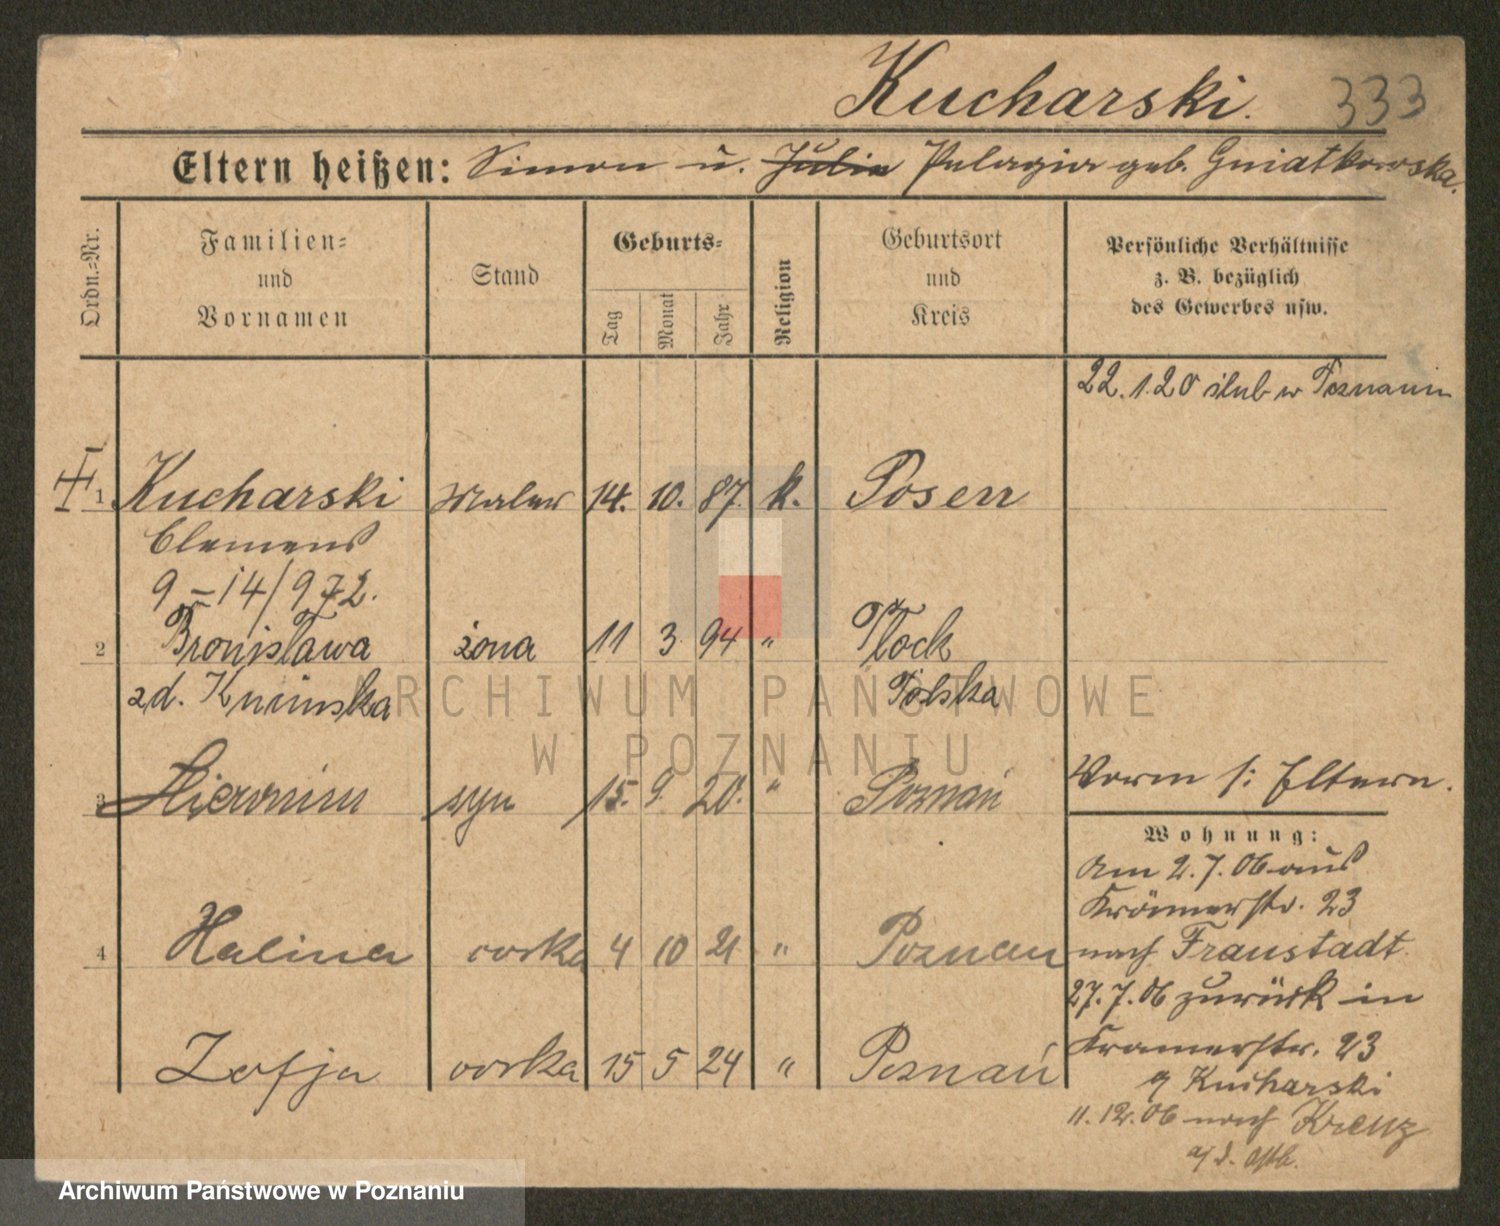 Kucharski. 333
Eltern heißen: Simon u. Julie Pelagia geb. Gniatkowska.
Ordn.=Nr.
Familien=
und
Vornamen
Stand
Geburts=
Tag
Monat
Jahr
Religion
Geburtsort
und
Kreis
Persönliche Verhältnisse
z. B. bezüglich
des Gewerbes usw.
22.1.20 ślub w Poznaniu
1 Kucharski Maler 14. 10. 87. k. Posen
Clemens
9-14/972.
2 Bronisława żona 11 3. 94 " Płock
zd. Polska
3 Hieronim syn 15. 9. 20. " Poznań
Vorm f: Eltern.
Wohnung:
am 2.7.06 aus
Krämerstr. 23
4 Halina corka 4 10 21 " Poznan
nach Fraustadt
27.7.06 zurück in
Zofja corka 15 5 24 " Poznań
Kramerstr. 23
Kucharski
11.12.06 nach Kreuz
a/d. Ostb.
ARCHIWUM PAŃSTWOWE
W POZNANIU
Archiwum Państwowe w Poznaniu